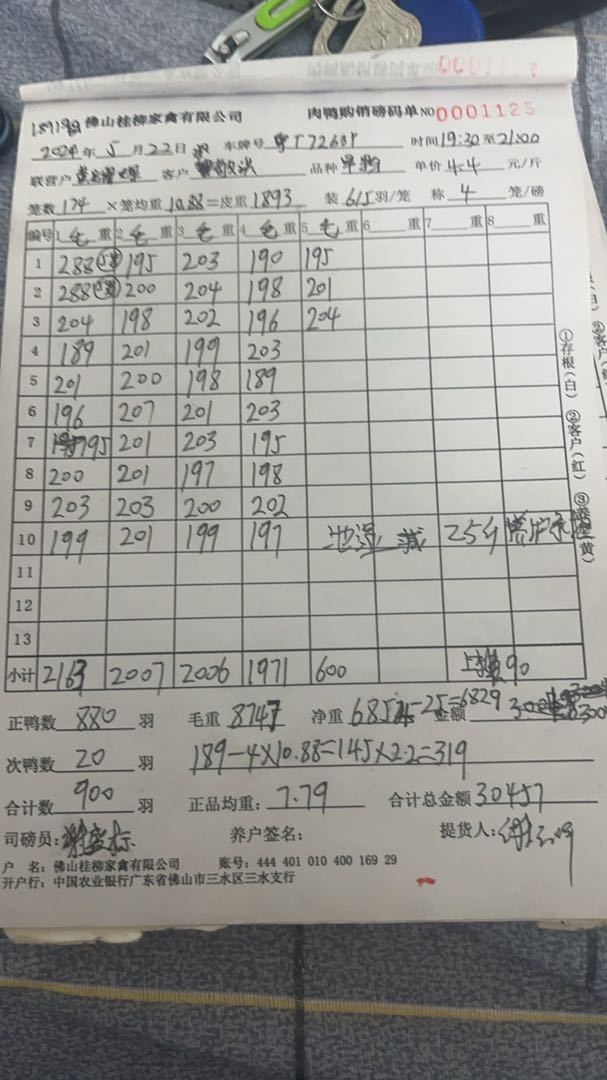 佛山桂柳家禽有限公司 肉鸭购销磅码单 NO 0001125
2024年5月22日 车牌号 时间19:30至21:00
联营户 客户 品种 单价4.4元/斤
笼数174×笼均重10.88=皮重1893 装6/5羽/笼 称4笼/磅
编号 1毛重 2毛重 3毛重 4毛重 5毛重 6重 7重 8重
1 288 195 203 190 195
2 288 200 204 198 201
3 204 198 202 196 204
4 189 201 199 203
5 201 200 198 189
6 196 207 201 203
7 195 201 203 195
8 200 201 197 198
9 203 203 200 202
10 199 201 199 197 地湿 减 25斤
11
12
13
小计 2163 2007 2006 1971 600 90
正鸭数880羽 毛重8747 净重6854-25=6829 金额
次鸭数20羽 189-4×10.88=145×2.2=319
合计数900羽 正品均重:7.79 合计总金额30457
司磅员: 养户签名: 提货人:
户 名:佛山桂柳家禽有限公司 账号:444 401 010 400 169 29
开户行:中国农业银行广东省佛山市三水区三水支行
①存根(白) ②客户(红) ③养户(黄)